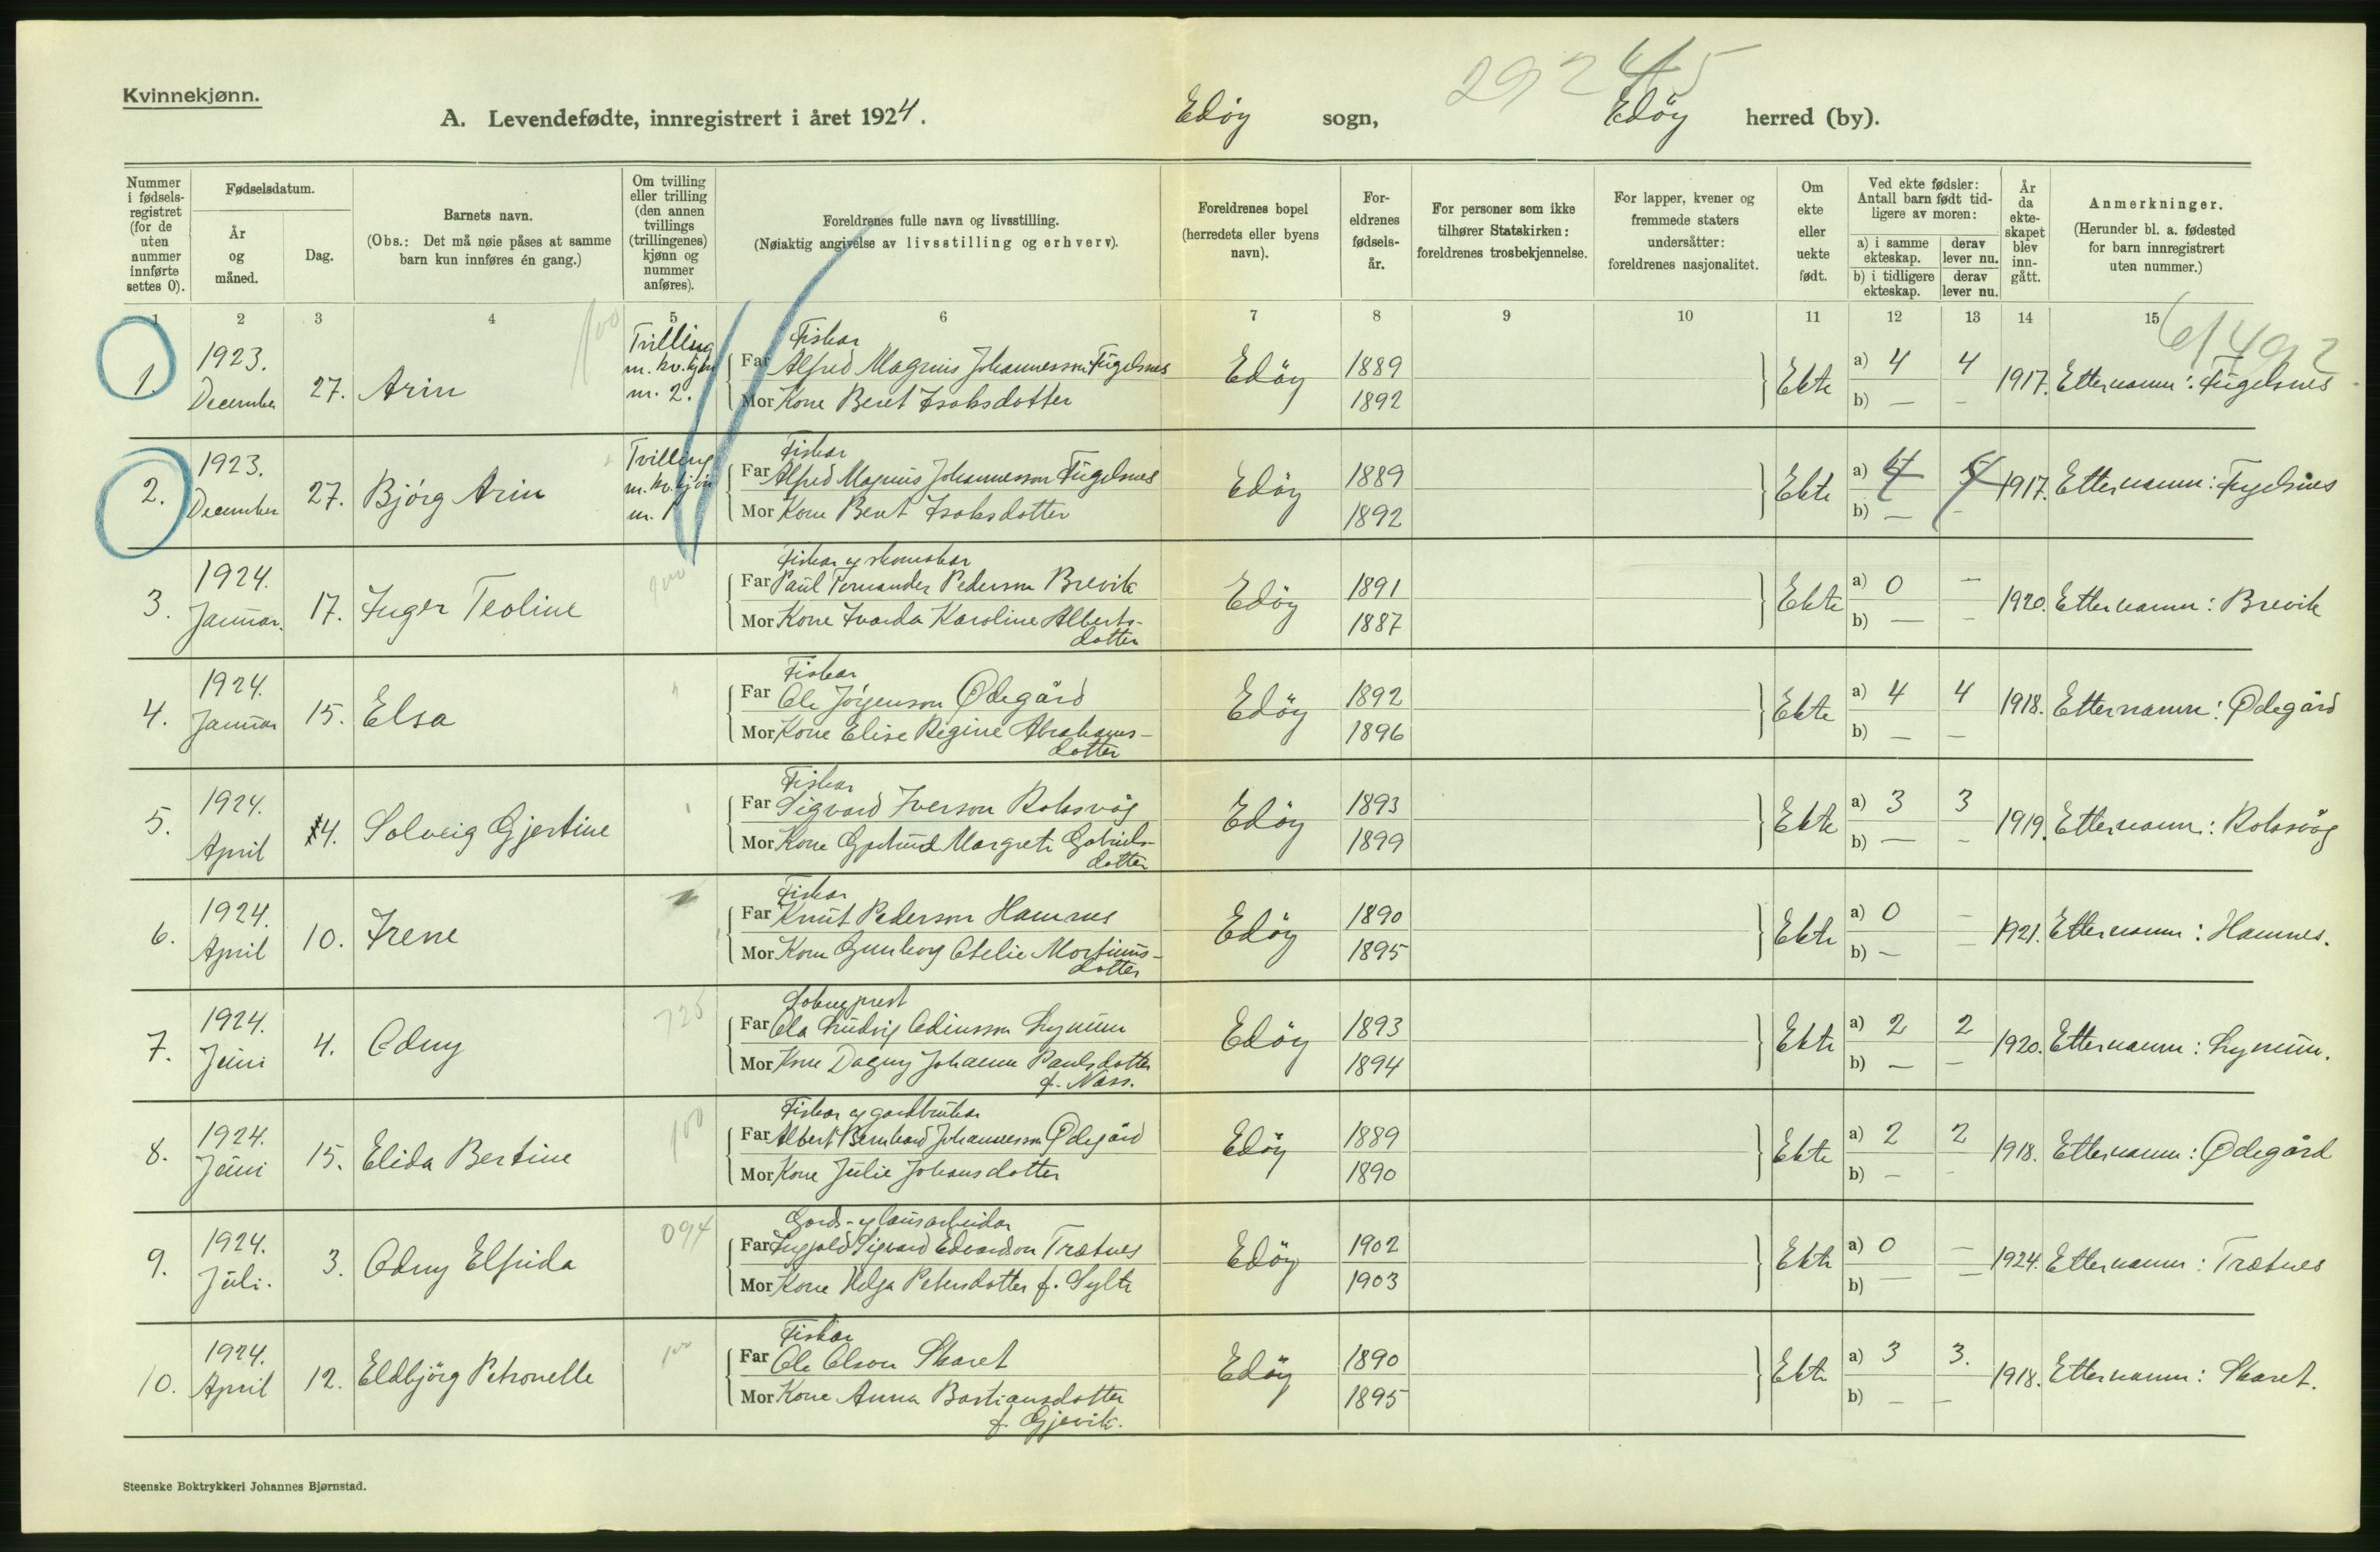 Kvinnekjønn.
29245
A. Levendefødte, innregistrert i året 1924. Edöy sogn, Edöy herred (by).
Nummer i fødselsregistret (for de uten nummer innførte settes 0).
Fødselsdatum.
År og måned.
Dag.
Barnets navn.
(Obs.: Det må nøie påses at samme barn kun innføres én gang.)
Om tvilling eller trilling (den annen tvillings (trillingenes) kjønn og nummer anføres).
Foreldrenes fulle navn og livsstilling.
(Nøiaktig angivelse av livsstilling og erhverv).
Foreldrenes bopel (herredets eller byens navn).
Foreldrenes fødselsår.
For personer som ikke tilhører Statskirken: foreldrenes trosbekjennelse.
For lapper, kvener og fremmede staters undersåtter: foreldrenes nasjonalitet.
Om ekte eller uekte født.
Ved ekte fødsler: Antall barn født tidligere av moren:
a) i samme ekteskap. derav lever nu.
b) i tidligere ekteskap. derav lever nu.
År da ekteskapet blev inngått.
Anmerkninger.
(Herunder bl. a. fødested for barn innregistrert uten nummer.)
1 2 3 4 5 6 7 8 9 10 11 12 13 14 15
1. 1923. December 27. Arin Tvilling m. kv. kjön nr. 2.
Fiskar
Far Alfred Magnus Johannesson Fugelsnes Edöy 1889 Ekte a) 4 4 1917. Etternamn: Fugelsnes
Mor Kone Beret Isaksdotter 1892 b) — —
2. 1923. December 27. Bjórg Arin Tvilling m. kv. kjön nr. 1
Fiskar
Far Alfred Magnus Johannesson Fugelsnes Edöy 1889 Ekte a) 1917. Etternamn: Fugelsnes
Mor Kone Beret Isaksdotter 1892 b) — —
3. 1924. Januar. 17. Inger Teoline
Fiskar og skomakar
Far Paul Fernander Pederson Brevik Edöy 1891 Ekte a) 0 — 1920. Etternamn: Brevik
Mor Kone Ivarda Karoline Alberts-
dotter 1887 b) — —
4. 1924. Januar 15. Elsa
Fiskar
Far Ole Jørgenson Ødegård Edöy 1892 Ekte a) 4 4 1918. Etternamn: Ødegård
Mor Kone Elise Regine Abrahams-
dotter 1896 b) — —
5. 1924. April 4. Solveig Gjertine
Fiskar
Far Sigvard Iverson Roksvåg Edöy 1893 Ekte a) 3 3 1919. Etternamn: Roksvåg
Mor Kone Gjertrud Margrete Gabriels-
dotter 1899 b) — —
6. 1924. April 10. Irene
Fiskar
Far Knut Pederson Hamnes Edöy 1890 Ekte a) 0 — 1921. Etternamn: Hamnes.
Mor Kone Gunborg Otelie Martinus-
dotter 1895 b) — —
7. 1924. Juni 4. Odny
Sokneprest
Far Ola Ludvig Odinsson Lynum Edöy 1893 Ekte a) 2 2 1920. Etternamn: Lynum.
Mor Kone Dagny Johanne Paulsdotter
f. Næss. 1894 b) — —
8. 1924. Juni 15. Elida Bertine
Fiskar og gardbrukar
Far Albert Bernhard Johannesson Ødegård Edöy 1889 Ekte a) 2 2 1918. Etternamn: Ødegård
Mor Kone Julie Johansdotter 1890 b) — —
9. 1924. Juli. 3. Odny Elfrida 094
Gards- og lausarbeidar
Far Ingvald Sigvard Edvardson Trætnes Edöy 1902 Ekte a) 0 — 1924. Etternamn: Trætnes
Mor Kone Helga Petersdotter f. Sylte 1903 b) — —
10. 1924. April 12. Eldbjörg Petronelle
Fiskar
Far Ole Olson Skaret Edöy 1890 Ekte a) 3 3. 1918. Etternamn: Skaret.
Mor Kone Anna Bastiansdotter
f. Gjevik. 1895 b) — —
Steenske Boktrykkeri Johannes Bjørnstad.